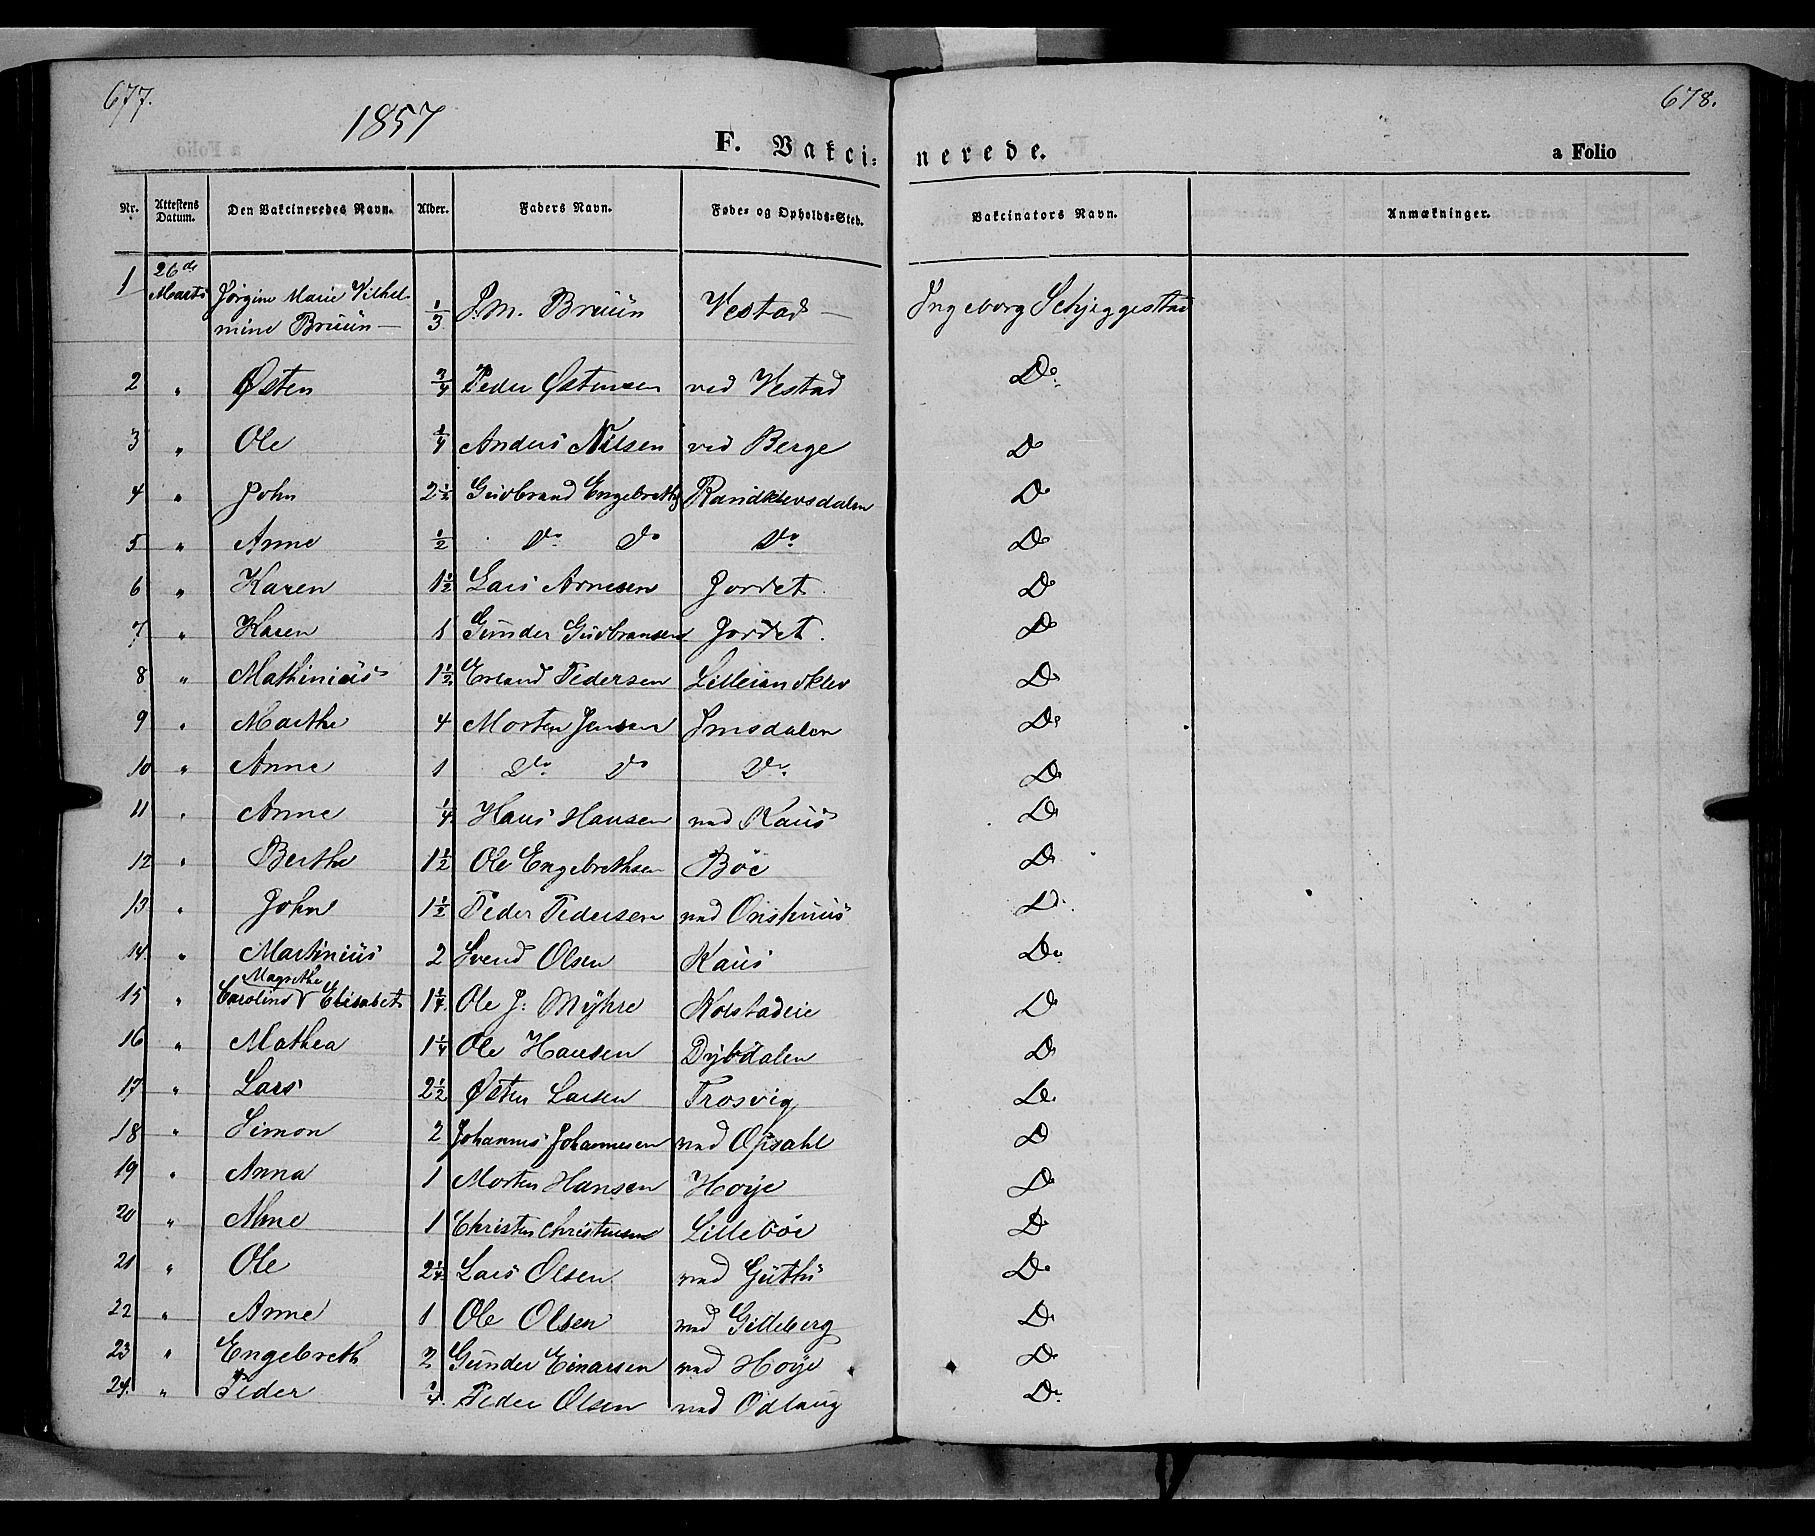 677.
678.
1857
F. Vakci-
nerede.
a Folio
Nr.
Attestens Datum.
Den Vakcineredes Navn.
Alder.
Faders Navn.
Føde- og Opholds-Sted.
Vakcinators Navn.
Anmækninger.
1 26de Marts Jørgine Marie Vilhel-
mine Bruun 1/3 J. M. Bruun Vestad Ingeborg Schjeggestad
2 " Østen 3/4 Peder Østensen ved Vestad Do
3 " Ole 1/4 Anders Nilsen ved Berge Do
4 " John 2 1/2 Gudbrand Engebreths Randklevsdalen Do
5 " Anne 1/2 Do Do Do Do
6 " Karen 1 1/2 Lars Arnesen Jordet. Do
7 " Karen 1 Gunder Gudbransen Jordet. Do
8 " Mathinius 1 1/2 Erland Pedersen Lillerandklev Do
9 " Marthe 4 Morten Jensen Imsdalen Do
10 " Anne 1 Do Do Do Do
11 " Anne 1/4 Hans Hansen ved Kaus Do
12 " Berthe 1 1/2 Ole Engebrethsen Böe Do
13 " John 1 1/2 Peder Pedersen ved Onshuus Do
14. " Martinius 2 Svend Olsen Kaus Do
Magrethe
15 " Caroline Elisabet 1 1/4 Ole J. Myhre Kolstadeie Do
16 " Mathea 1 1/4 Ole Hansen Dybdalen Do
17 " Lars 2 1/2 Østen Larsen Trosvig Do
18 " Simon 2 Johannes Johannesen ved Opsahl Do
19 " Anna 1 Morten Hansen Høye Do
20 " Anne 1 Christen Christensen Lilleböe Do
21 " Ole 2 1/4 Lars Olsen ved Guthus Do
22 " Anne 1 Ole Olsen ved Gilleberg Do
23 " Engebreth 2 Gunder Einarsen ved Høye Do
24. " Peder 3/4 Peder Olsen ved Odlaug Do